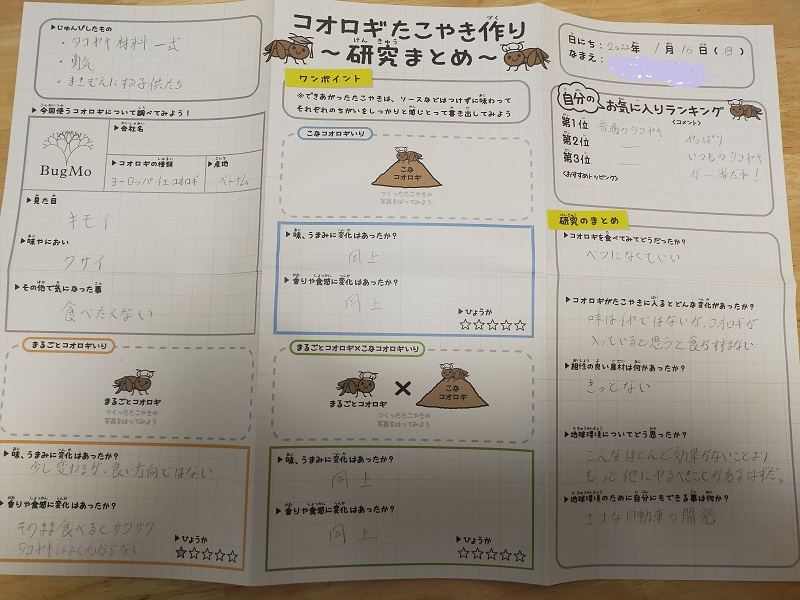 じゅんびしたもの
・タコヤキ材料 一式
・勇気
・まきぞえにする子供たち
今回使うコオロギについて調べてみよう！
会社名
BugMo
コオロギの種類
ヨーロッパイエコオロギ
産地
ベトナム
見た目
キモイ
味やにおい
クサイ
その他で気になった事
食べたくない
まるごとコオロギいり
まるごとコオロギ
つくったたこやきの
写真をはってみよう
味、うまみに変化はあったか？
少し変わるが、良い方向ではない
香りや食感に変化はあったか？
そのまま食べるとサクサク
タコヤキはよくわからない
ひょうか
★☆☆☆☆
コオロギたこやき作り
～研究まとめ～
ワンポイント
※できあがったたこやきは、ソースなどはつけずに味わって
それぞれのちがいをしっかりと感じとって書き出してみよう
こなコオロギいり
こな
コオロギ
つくったたこやきの
写真をはってみよう
味、うまみに変化はあったか？
同上
香りや食感に変化はあったか？
同上
ひょうか
☆☆☆☆☆
まるごとコオロギ×こなコオロギいり
まるごとコオロギ
×
こな
コオロギ
つくったたこやきの
写真をはってみよう
味、うまみに変化はあったか？
同上
香りや食感に変化はあったか？
同上
ひょうか
☆☆☆☆☆
日にち：2022年 1月16日(日)
なまえ：
自分の お気に入りランキング
<コメント>
第1位 普通のタコヤキ
第2位 ―
第3位 ―
やっぱり
いつものタコヤキ
が一番だね！
<おすすめトッピング>
研究のまとめ
コオロギを食べてみてどうだったか？
ベツになくていい
コオロギがたこやきに入るとどんな変化があったか？
味はイヤではないが、コオロギが
入っていると思うと食がすすまない
相性の良い具材は何かあったか？
きっとない
地球環境についてどう思ったか？
こんなほとんど効果がないことより
もっと他にやるべきことがあるはずだ。
地球環境のために自分にもできる事は何か？
エコな自動車の開発